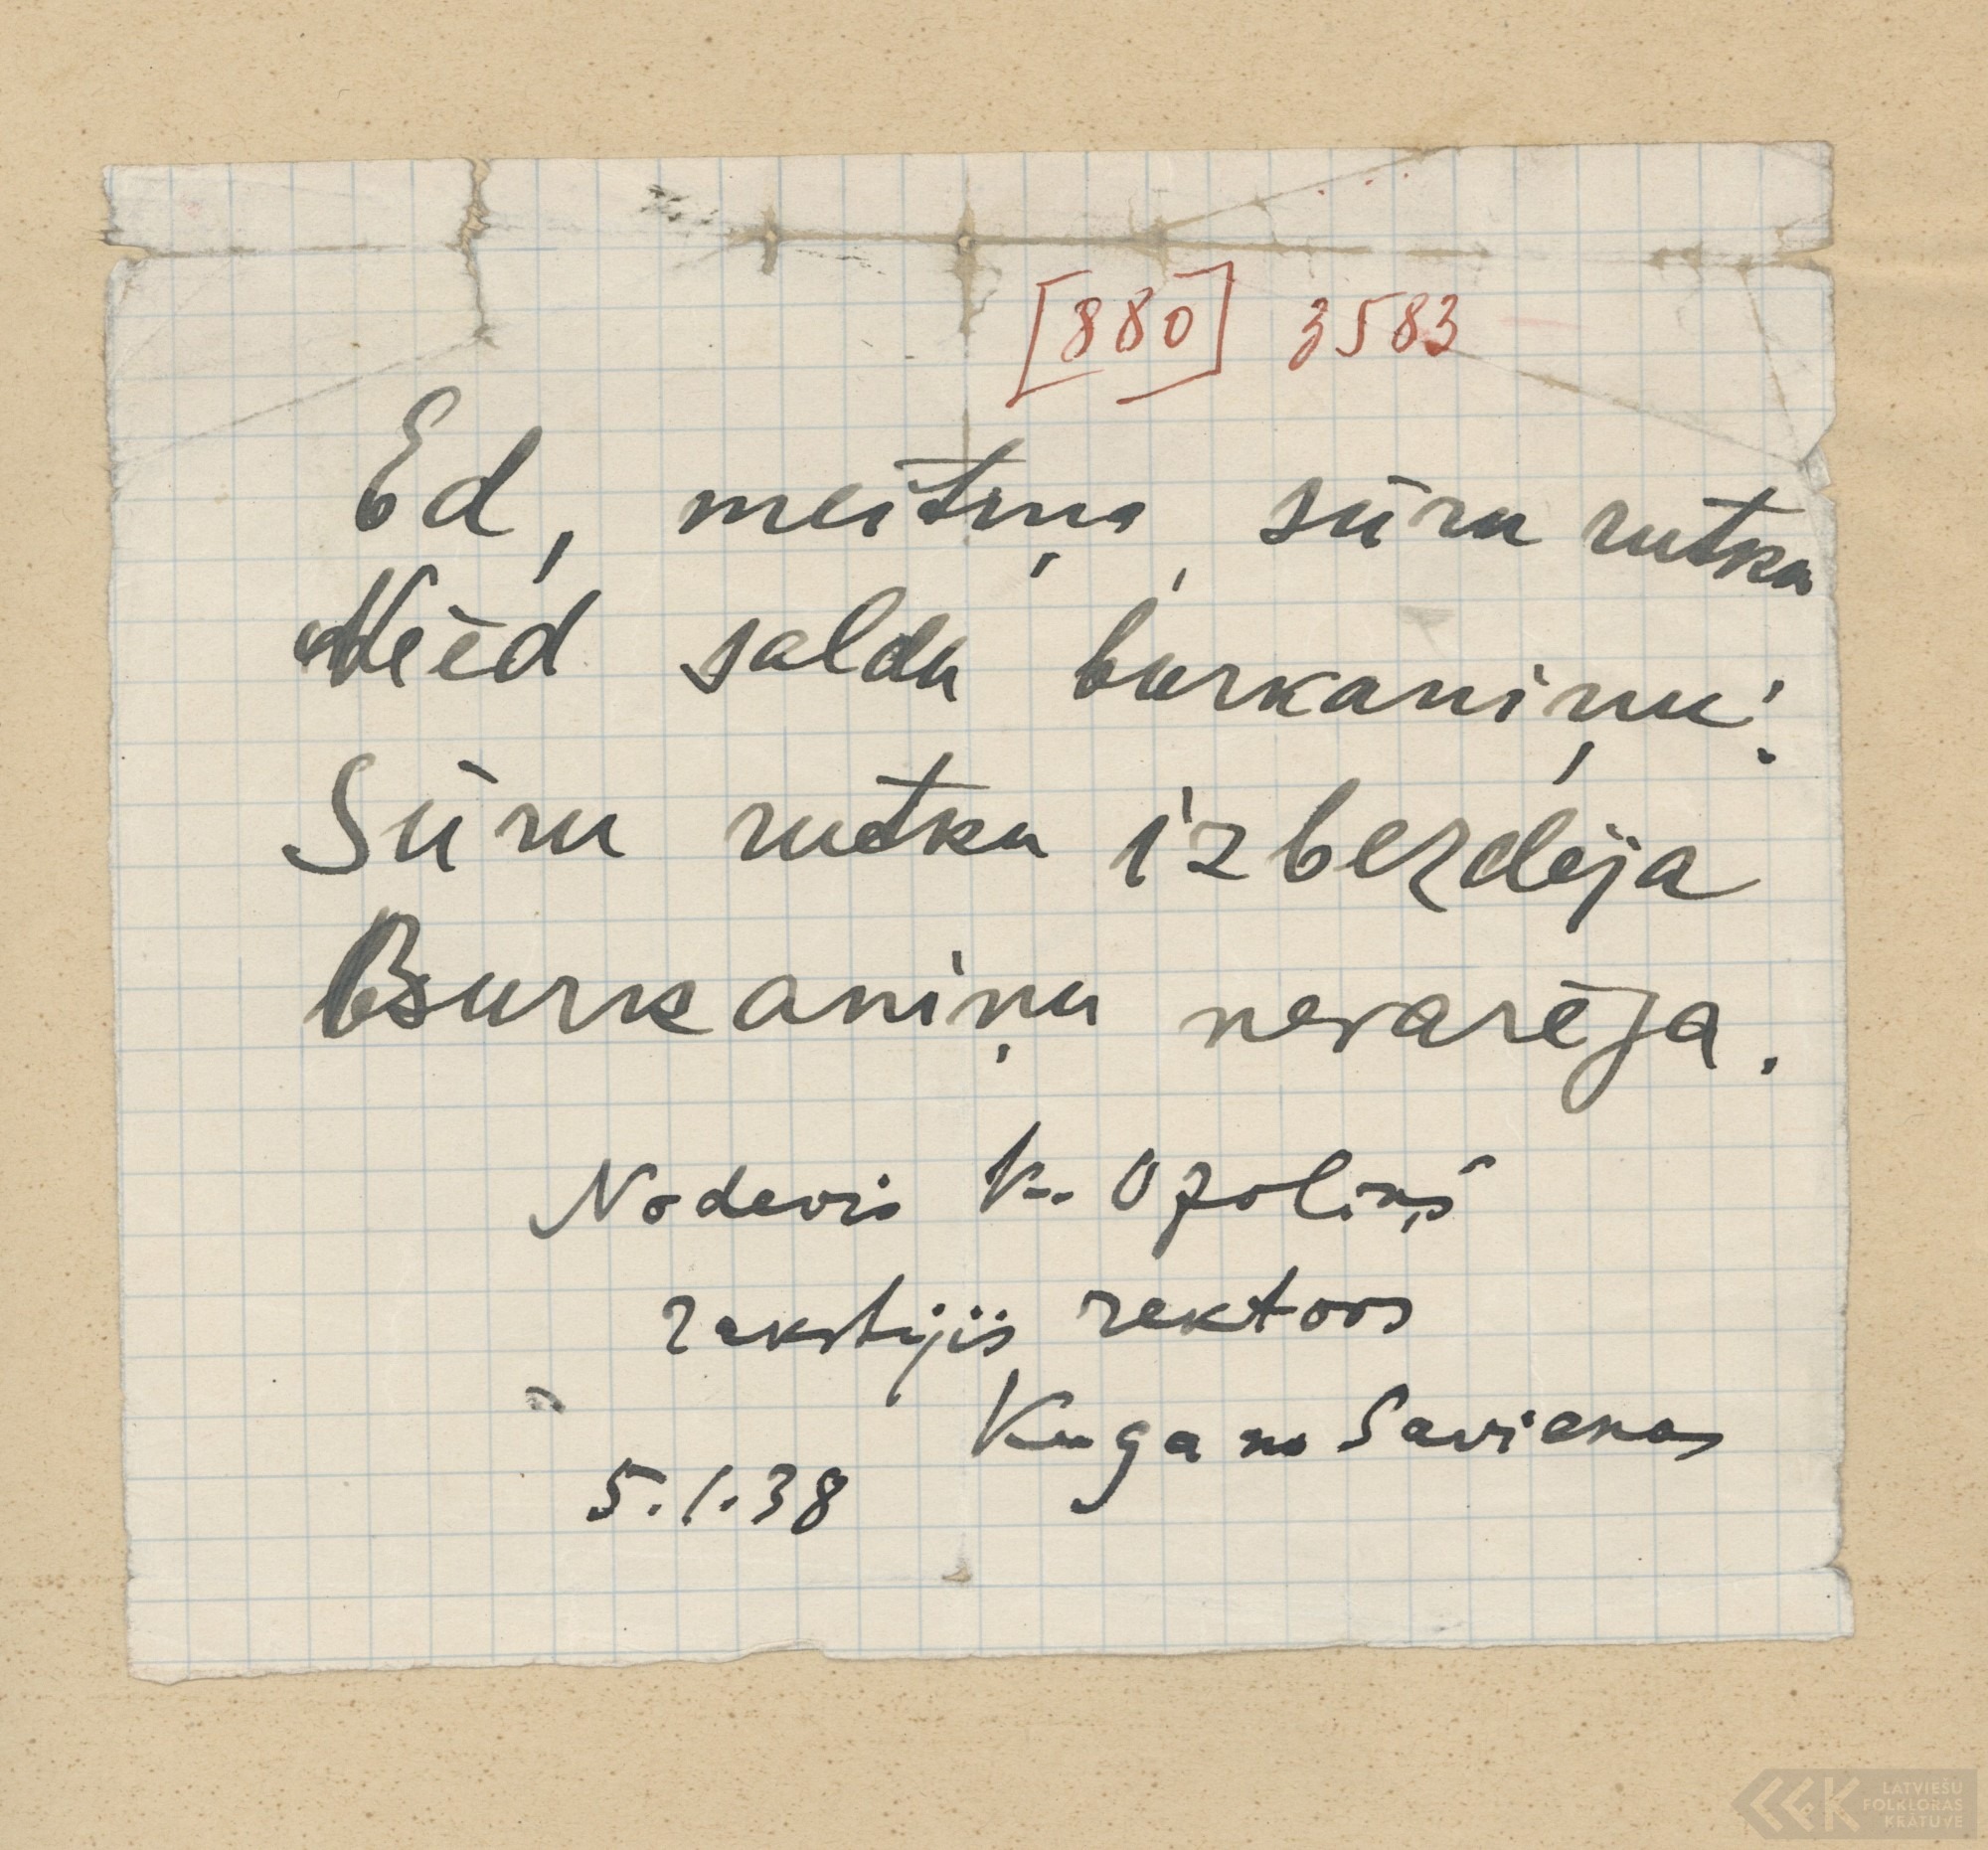 [880] 3583
Ed, meitiņa, sūru rutku
Neēd saldu burkaniņu:
Sūru rutku izbezdēja
Burkaniņu nevarēja.
Nodevis K. Ozoliņš
rakstijis rektors
Kuga no Savienas
5.1.38
LATVIEŠU
FOLKLORAS
KRĀTUVE